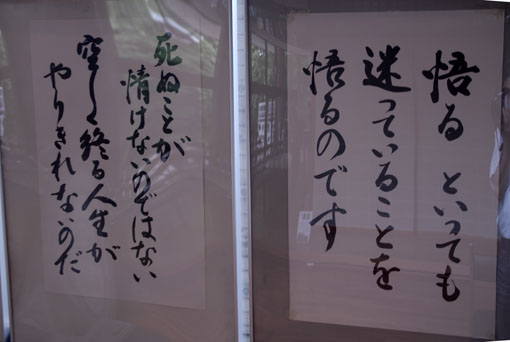 悟る といっても
迷っていることを
悟るのです
死ぬことが
情けないのではない
空しく終る人生が
やりきれないのだ